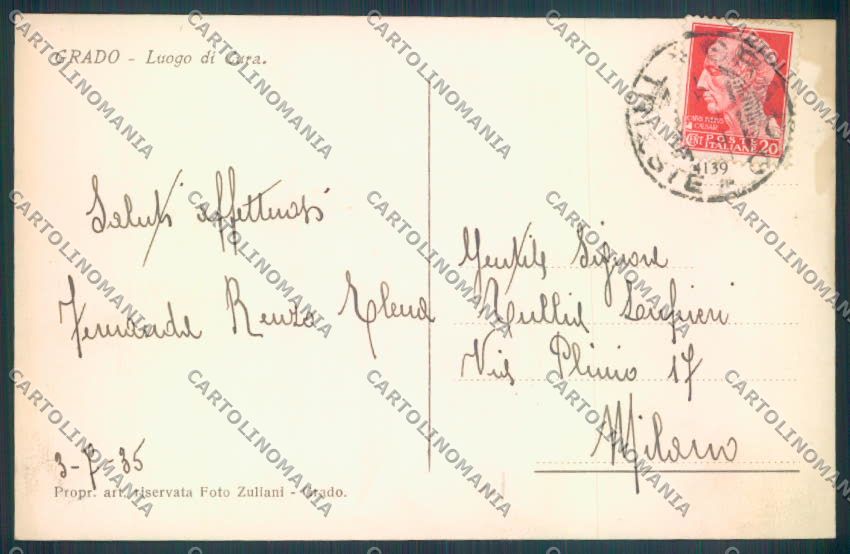 GRADO - Luogo di Cura.
Saluti affettuosi
Fernanda Renzo Elena
3-7-35
Propr. art. riservata Foto Zuliani - Grado.
CAIVS IVLIVS
CAESAR
CENT POSTE ITALIANE 20
4139
TRIESTE
Gentile Signora
Tullia
Via Plinio 17
Milano
CARTOLINOMANIA